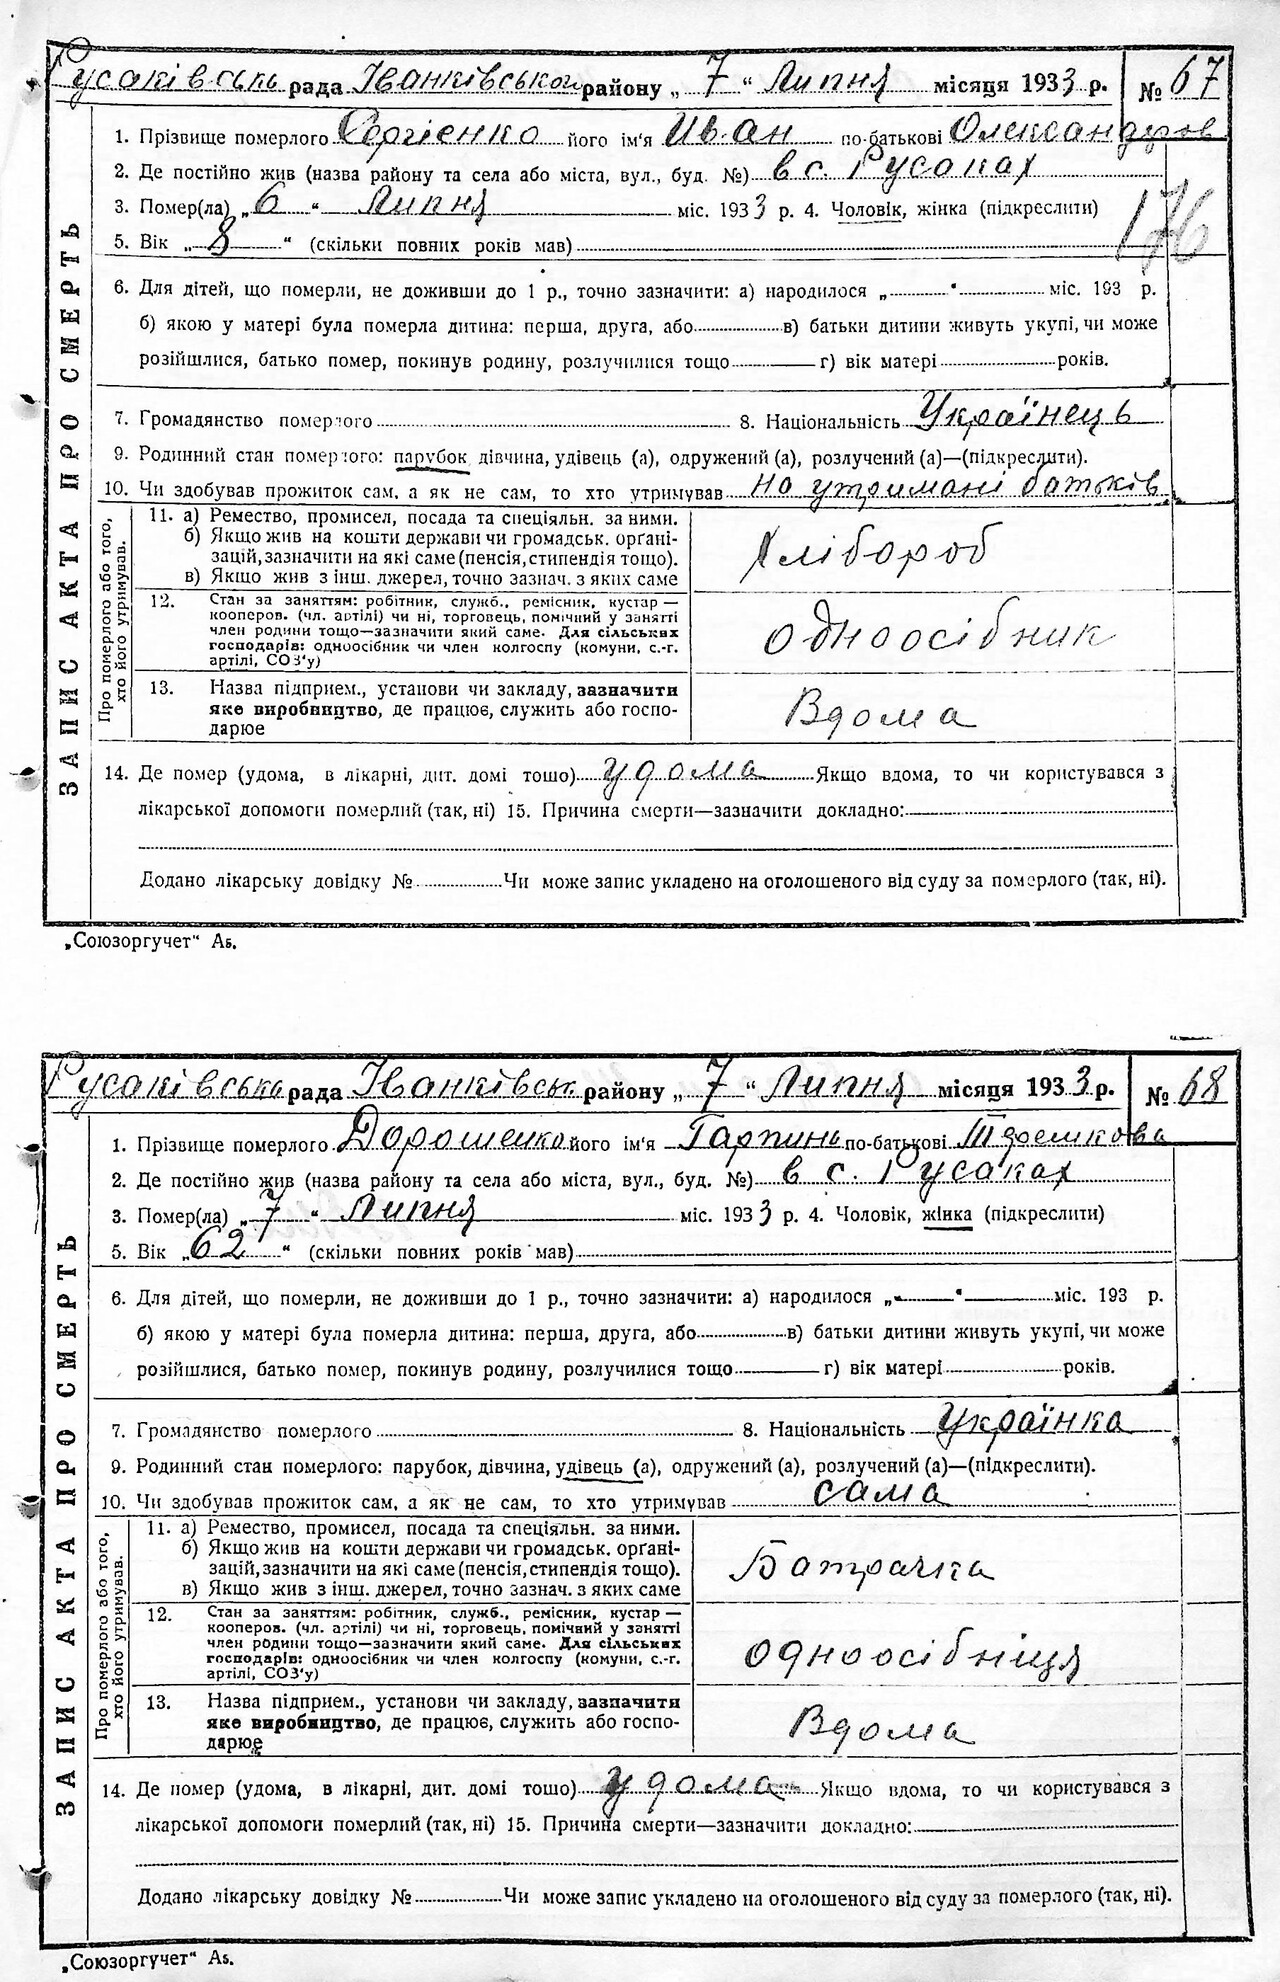 Русаківська рада Іванківськой району „ 7 “ Липня місяця 1933 р. № 67
1. Прізвище померлого Сергієнко його ім'я Иван по-батькові Олександров
2. Де постійно жив (назва району та села або міста, вул., буд. №) в с. Русаках
3. Помер(ла) „ 6 “ Липня міс. 1933 р. 4. Чоловік, жінка (підкреслити)
176
5. Вік „ 8 “ (скільки повних років мав)
6. Для дітей, що померли, не доживши до 1 р., точно зазначити: а) народилося „ “ міс. 193 р.
б) якою у матері була померла дитина: перша, друга, або в) батьки дитини живуть укупі, чи може
розійшлися, батько помер, покинув родину, розлучилися тощо г) вік матері років.
7. Громадянство померлого 8. Національність Українець
9. Родинний стан померлого: парубок, дівчина, удівець (а), одружений (а), розлучений (а)—(підкреслити).
10. Чи здобував прожиток сам, а як не сам, то хто утримував на утримані батьків
Про померлого або того,
хто його утримував.
11. а) Ремество, промисел, посада та спеціяльн. за ними.
б) Якщо жив на кошти держави чи громадськ. орґані-
зацій, зазначити на які саме (пенсія, стипендія тощо).
в) Якщо жив з інш. джерел, точно зазнач. з яких саме
Хлібороб
12. Стан за заняттям: робітник, служб., ремісник, кустар —
кооперов. (чл. артілі) чи ні, торговець, помічний у занятті
член родини тощо—зазначити який саме. Для сільських
господарів: одноосібник чи член колгоспу (комуни, с.-г.
артілі, СОЗ'у)
одноосібник
13. Назва підприєм., установи чи закладу, зазначити
яке виробництво, де працює, служить або госпо-
дарює
Вдома
14. Де помер (удома, в лікарні, дит. домі тощо) удома Якщо вдома, то чи користувався з
лікарської допомоги померлий (так, ні) 15. Причина смерти—зазначити докладно:
Додано лікарську довідку № Чи може запис укладено на оголошеного від суду за померлого (так, ні).
ЗАПИС АКТА ПРО СМЕРТЬ
„Союзоргучет“ А5.
Русаківська рада Іванківськ району „ 7 “ Липня місяця 1933 р. № 68
1. Прізвище померлого Дорошенко його ім'я Гарпина по-батькові
2. Де постійно жив (назва району та села або міста, вул., буд. №) в с. Русаках
3. Помер(ла) „ 7 “ Липня міс. 1933 р. 4. Чоловік, жінка (підкреслити)
5. Вік „ 62 “ (скільки повних років мав)
6. Для дітей, що померли, не доживши до 1 р., точно зазначити: а) народилося „ “ міс. 193 р.
б) якою у матері була померла дитина: перша, друга, або в) батьки дитини живуть укупі, чи може
розійшлися, батько помер, покинув родину, розлучилися тощо г) вік матері років.
7. Громадянство померлого 8. Національність Українка
9. Родинний стан померлого: парубок, дівчина, удівець (а), одружений (а), розлучений (а)—(підкреслити).
10. Чи здобував прожиток сам, а як не сам, то хто утримував сама
Про померлого або того,
хто його утримував.
11. а) Ремество, промисел, посада та спеціяльн. за ними.
б) Якщо жив на кошти держави чи громадськ. орґані-
зацій, зазначити на які саме (пенсія, стипендія тощо).
в) Якщо жив з інш. джерел, точно зазнач. з яких саме
Батрачка
12. Стан за заняттям: робітник, служб., ремісник, кустар —
кооперов. (чл. артілі) чи ні, торговець, помічний у занятті
член родини тощо—зазначити який саме. Для сільських
господарів: одноосібник чи член колгоспу (комуни, с.-г.
артілі, СОЗ'у)
одноосібніця
13. Назва підприєм., установи чи закладу, зазначити
яке виробництво, де працює, служить або госпо-
дарює
Вдома
14. Де помер (удома, в лікарні, дит. домі тощо) удома Якщо вдома, то чи користувався з
лікарської допомоги померлий (так, ні) 15. Причина смерти—зазначити докладно:
Додано лікарську довідку № Чи може запис укладено на оголошеного від суду за померлого (так, ні).
ЗАПИС АКТА ПРО СМЕРТЬ
„Союзоргучет“ А5.